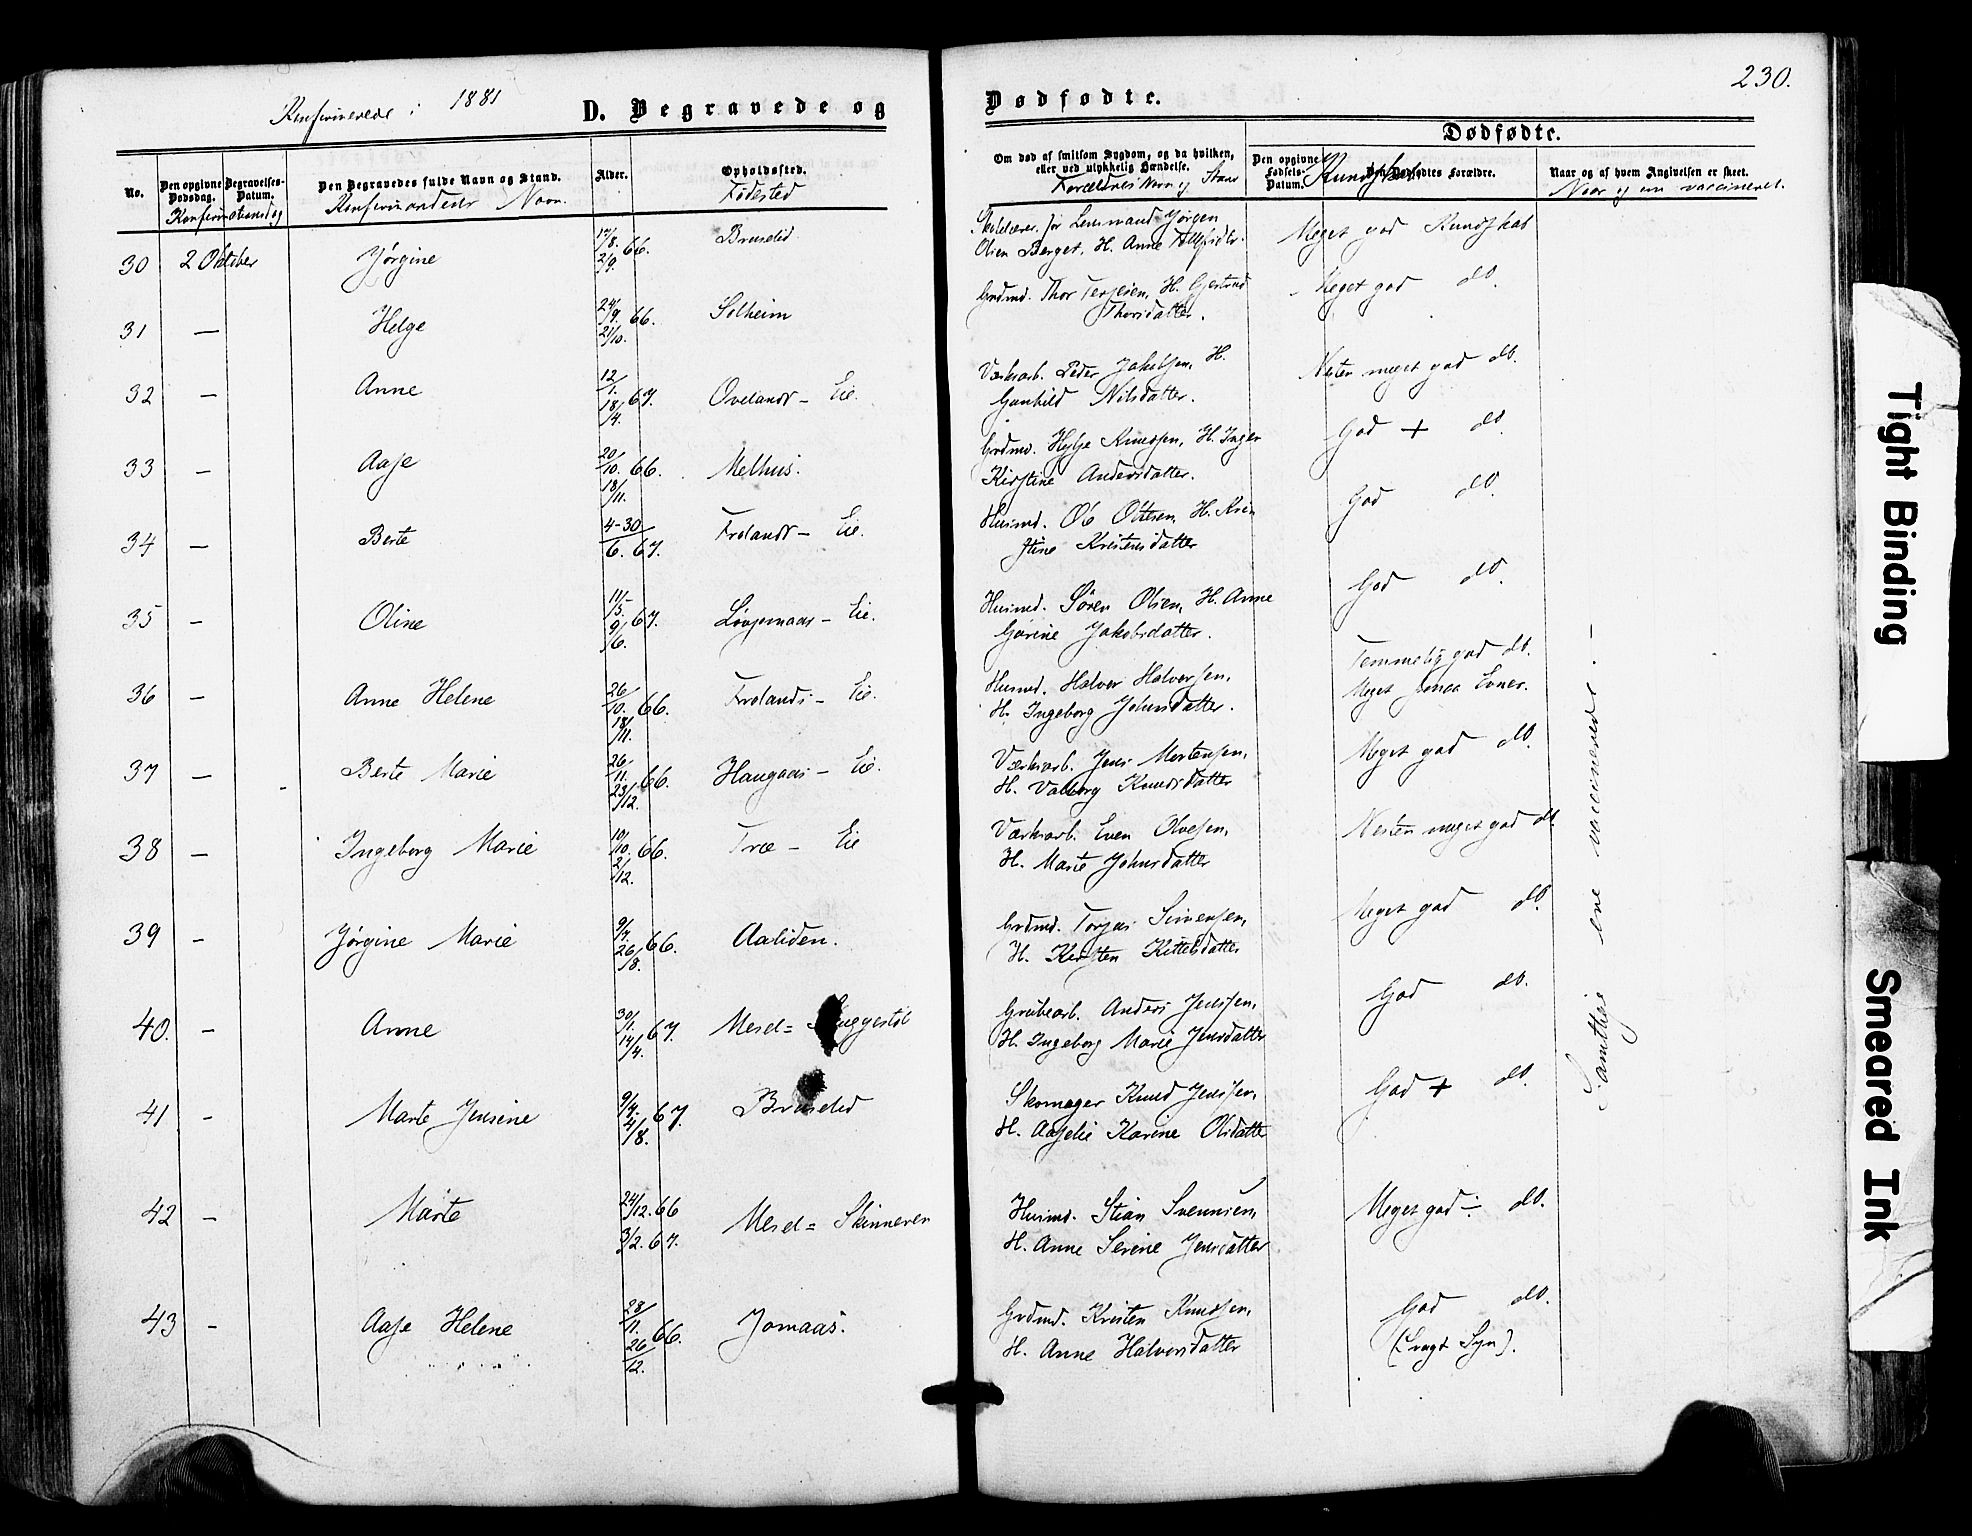 230.
Konfirmerede i 1881
D. Begravede og Dødfødte.
Dødfødte.
No.
Den opgivne Dødsdag.
Begravelses-Datum.
Den Begravedes fulde Navn og Stand.
Alder.
Opholdssted.
Om død af smitsom Sygdom, og da hvilken, eller ved ulykkelig Hændelse.
Den opgivne Fødsels-Datum.
Den Dødfødtes Forældre.
Naar og af hvem Angivelsen er skeet.
Konfirmationsdag
Konfirmandens Navn.
Fødested
Forældres Navn og Stand
Kundskab
Naar og om vaccineret.
30 2 Oktober Jørgine 12/8. 2/9. 66. Bruselid Skolelærer, før Lensmand Jørgen Meget god Kundskab
Olsen Berget, H. Anne
31 — Helge 24/9. 21/10. 66. Solheim Grdmd. Thor Terjesen, H. Gjertrud Meget god do.
Thorsdatter.
32 — Anne 12/1. 18/4. 67. Ovelands- Eie. Værksarb. Peder Jakobsen, H. Nesten meget god do.
Gunhild Nilsdatter.
33 — Aase 20/10. 18/11. 66. Melhus. Grdmd. Helge Knudsen, H. Inger God + do.
Kirstine Andersdatter.
34 — Berte 4-30/6. 67. Frolands- Eie. Husmd. Ole Ottersen, H. Kris God do.
stine Kristensdatter
35 — Oline 11/5. 9/6. 67. Eie. Husmd. Søren Olsen, H. Anne God do.
Gurine Jakobsdatter.
36 — Anne Helene 26/10. 18/11. 66. Frolands- Eie. Husmd. Halvor Halvorsen, Temmelig god do.
H. Ingeborg Johnsdatter. Meget smaa Evner.
37 — Berte Marie 26/11. 23/12. 66. Haugaas- Eie. Værksarb. Jens Mortensen, Meget god do.
H. Valborg Knudsdatter
38 — Ingeborg Marie 10/10. 2/12. 66. Træ- Eie Værksarb. Even Olvesen, Nesten meget god do.
H. Marte Johnsdatter
39 — Jørgine Marie 9/7. 26/8. 66. Aaliden. Grdmd. Torjus Simensen, Meget god do.
H. Kirsten Kittelsdatter
40. — Anne 30/1. 14/4. 67. Mesel= Grubearb. Anders Jenssen, God do.
H. Ingeborg Marie Jensdatter
41 — Marte Jensine 9/7. 4/8. 67. Bruselid Skomager Knud Jenssen, God + do.
H. Aaselie Karine Olsdatter
42 — Marte 24/12. 66 3/2. 67. Mesel= Skinneren Husmd. Stian Svennsen, Meget god ÷ do.
H. Anne Serine Jensdatter
43 — Aase Helene 28/11. 26/12. 66. Jomaas. Grdmd. Kristen Knudsen, God do.
H. Anne Halvorsdatter (Svagt Syn).
Samtlige ere vaccinerede. —
Tight Binding
Smeared Ink